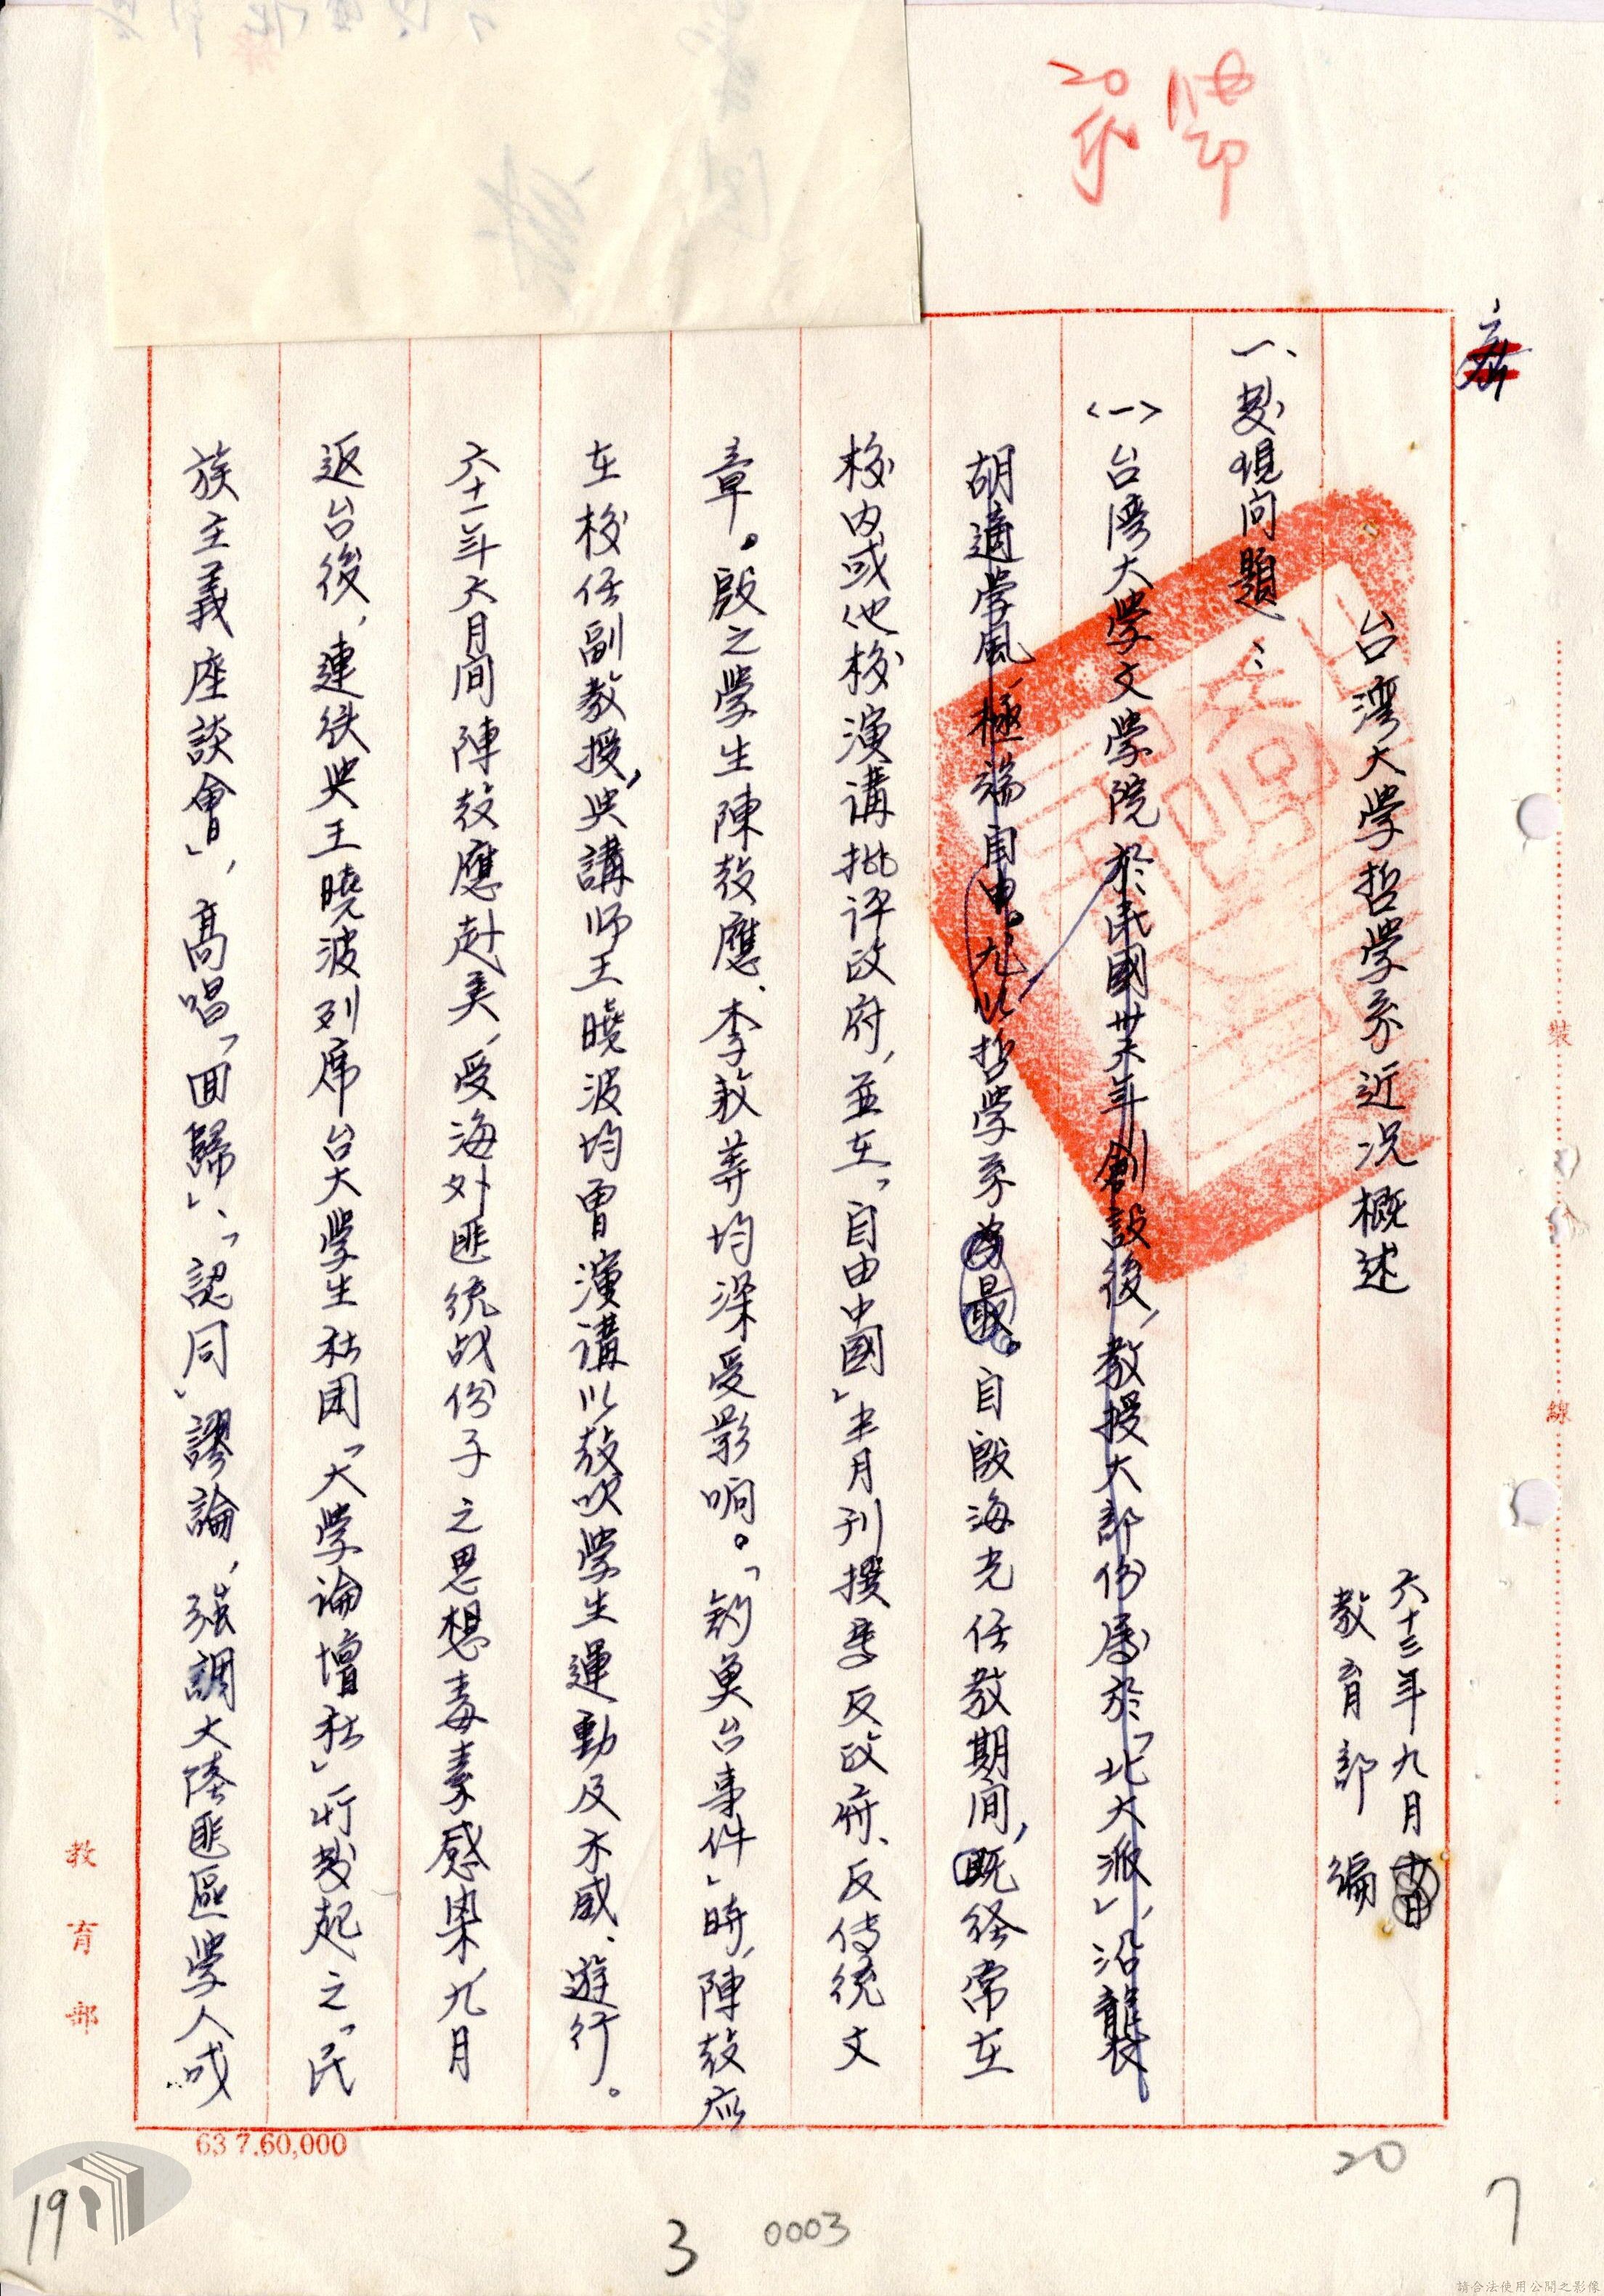 20
印
台湾大学哲学系近況概述
六十三年九月
教育部編
一、發現问題：
<一>台湾大学文学院於民國卅六年創設後，教授大部份屬於「北大派」，沿襲
胡適学風，極端自由。尤以哲学系為最。自殷海光任教期间，既经常在
校内或他校演講批评政府，並在「自由中國」半月刊撰寫反政府、反传统文
章。殷之学生陳鼓應、李敖等均深受影响。「釣魚台事件」時，陳鼓应
在校任副教授，與講师王曉波均曾演講以鼓吹学生運動及示威、遊行。
六十一年六月间陳鼓應赴美，受海外匪统战份子之思想毒素感染，九月
返台後，連続與王曉波列席台大学生社团「大学論壇社」所發起之「民
族主義座談會」，高唱「回歸」、「認同」謬論，强調大陸匪區学人成
裝
線
教育部
63 7.60,000
20
19
3
0003
7
請合法使用公開之影像